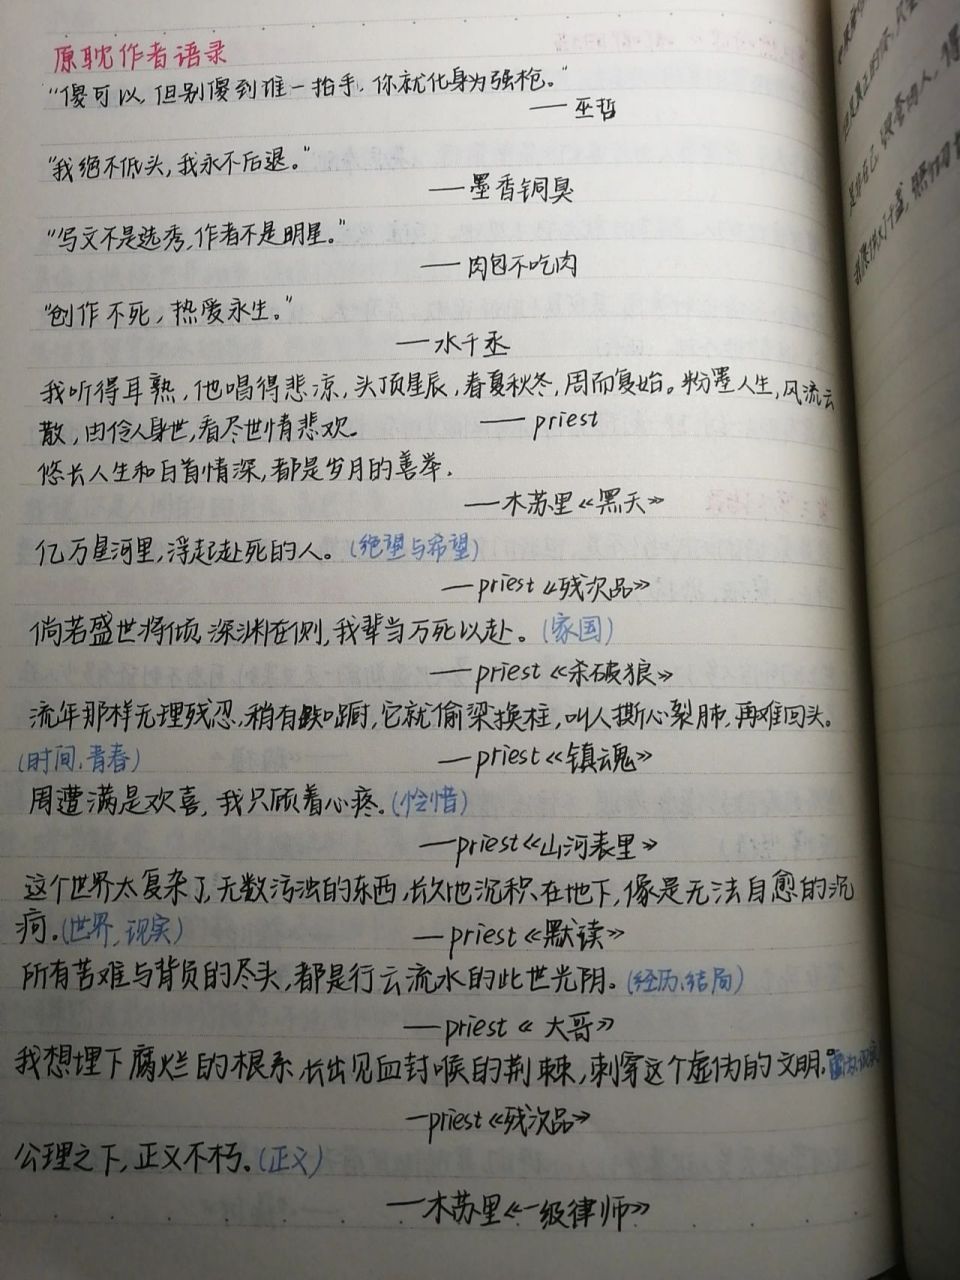 原耽作者语录
“傻可以，但别傻到谁一抬手，你就化身为强枪。”
——巫哲
“我绝不低头，我永不后退。”
——墨香铜臭
“写文不是选秀，作者不是明星。”
——肉包不吃肉
“创作不死，热爱永生。”
——水千丞
我听得耳熟，他唱得悲凉，头顶星辰，春夏秋冬，周而复始。粉墨人生，风流云
散，由伶人身世，看尽世情悲欢。 ——priest
悠长人生和白首情深，都是岁月的善举。
——木苏里《黑天》
亿万星河里，浮起赴死的人。(绝望与希望)
——priest《残次品》
倘若盛世将倾，深渊在侧，我辈当万死以赴。(家国)
——priest《杀破狼》
流年那样无理残忍，稍有踟蹰，它就偷梁换柱，叫人撕心裂肺，再难回头。
(时间，青春) ——priest《镇魂》
周遭满是欢喜，我只顾着心疼。(怜惜)
——priest《山河表里》
这个世界太复杂了，无数污浊的东西，长久地沉积在地下，像是无法自愈的沉
疴。(世界，现实) ——priest《默读》
所有苦难与背负的尽头，都是行云流水的此世光阴。(经历，结局)
——priest《大哥》
我想埋下腐烂的根系，长出见血封喉的荆棘，刺穿这个虚伪的文明。
—priest《残次品》
公理之下，正义不朽。(正义)
——木苏里《一级律师》